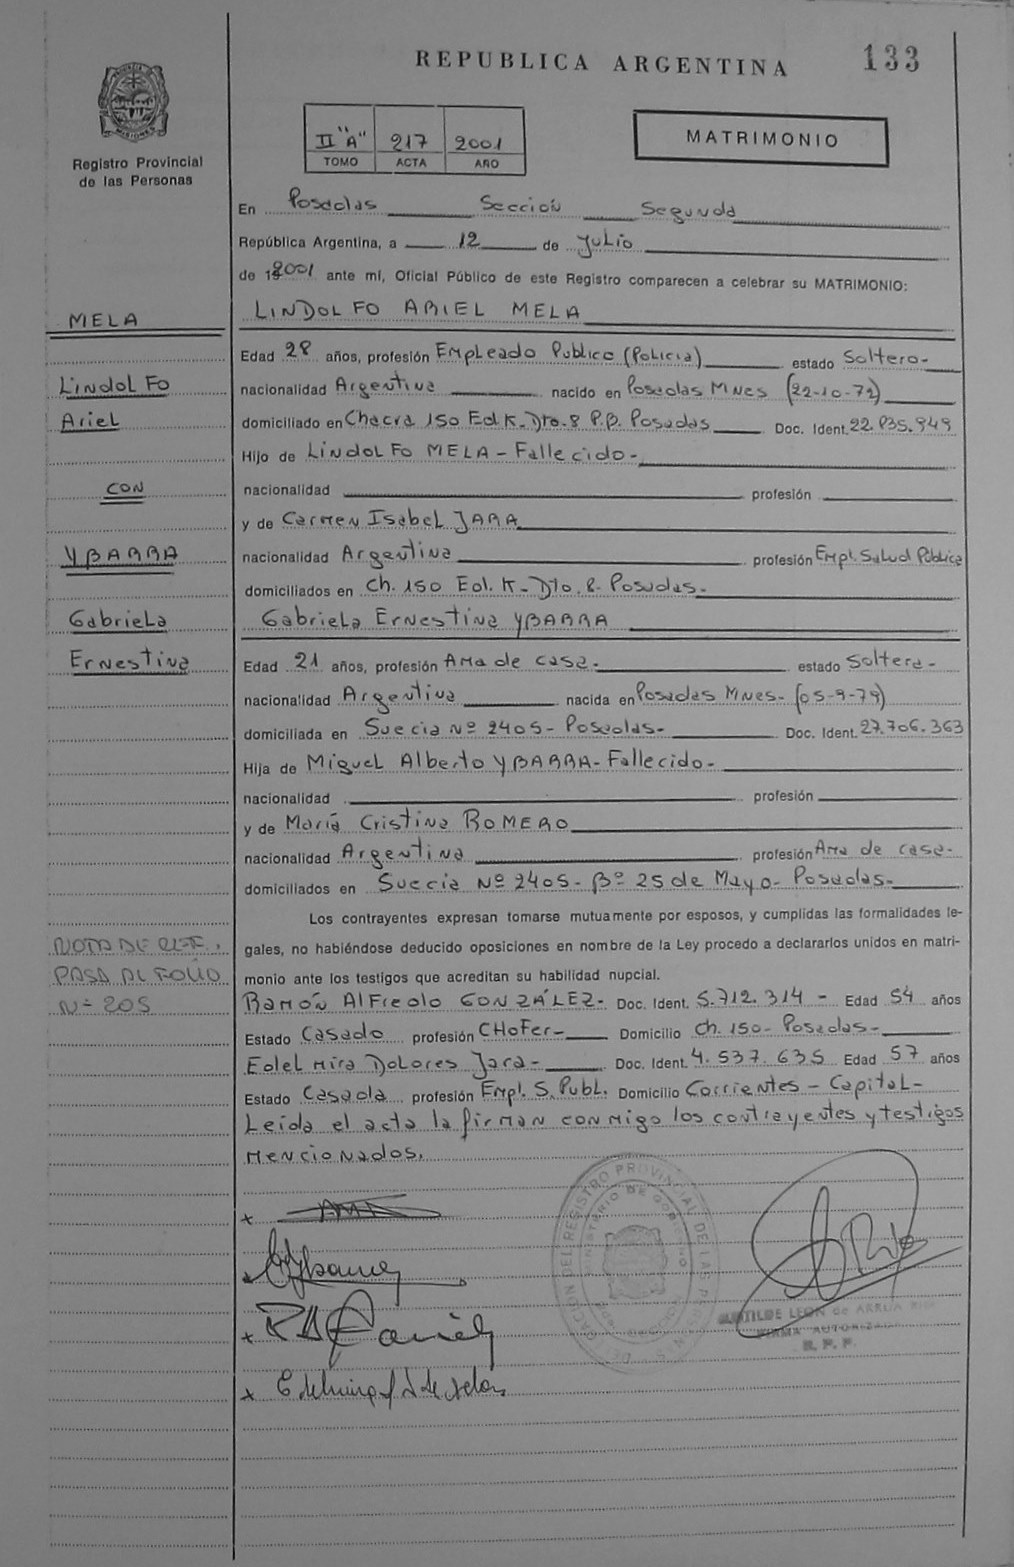 REPUBLICA ARGENTINA
133
Registro Provincial
de las Personas
II "A" 217 2001
TOMO ACTA AÑO
MATRIMONIO
En Posadas Sección Segunda
República Argentina, a 12 de Julio
de 2001 ante mí, Oficial Público de este Registro comparecen a celebrar su MATRIMONIO:
MELA
LINDOLFO ARIEL MELA
Edad 28 años, profesión Empleado Publico (Policia) estado Soltero-
LindoLFo
nacionalidad Argentina nacido en Posadas Mnes (22-10-72)
Ariel
domiciliado en Chacra 150 Ed K- Dto- 8 P.B. Posadas Doc. Ident. 22.935.949
Hijo de LindoLFo MELA - Fallecido-
CON
nacionalidad profesión
y de Carmen Isabel JARA
YBARRA
nacionalidad Argentina profesión Empl. Salud Publica
domiciliados en Ch. 150 Ed. K- Dto. 8- Posadas-
Gabriela
Gabriela Ernestina YBARRA
Ernestina
Edad 21 años, profesión Ama de casa- estado Soltera-
nacionalidad Argentina nacida en Posadas Mnes- (05-9-79)
domiciliada en Suecia Nº 2405- Posadas- Doc. Ident. 27.706.363
Hija de Miguel Alberto YBARRA- Fallecido-
nacionalidad profesión
y de María Cristina ROMERO
nacionalidad Argentina profesión Ama de casa-
domiciliados en Suecia Nº 2405- Bº 25 de Mayo- Posadas-
Los contrayentes expresan tomarse mutuamente por esposos, y cumplidas las formalidades le-
NOTA DE REF.,
gales, no habiéndose deducido oposiciones en nombre de la Ley procedo a declararlos unidos en matri-
PASA AL FOLIO
monio ante los testigos que acreditan su habilidad nupcial.
Nº 205
Ramón Alfredo GONZÁLEZ- Doc. Ident. 5.712.314 - Edad 54 años
Estado Casado profesión CHoFer- Domicilio Ch. 150- Posadas-
Edelmira Dolores Jara- Doc. Ident. 4.537.635 Edad 57 años
Estado Casada profesión Empl. S. Publ. Domicilio Corrientes - Capital-
Leída el acta la firman conmigo los contrayentes y testigos
mencionados.
DELEGACION DEL REGISTRO PROVINCIAL DE LAS PERSONAS
MINISTERIO DE GOBIERNO
MATILDE LEON de ARRUA
FIRMA AUTORIZADA
R. P. P.